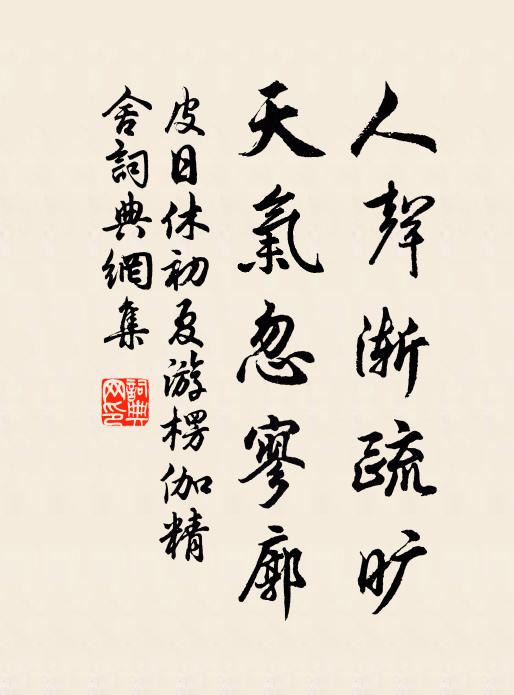 人聲漸疏旷
天氣忽寥廓
皮日休初夏游楞伽精
舍詞典網集
詞典
网印